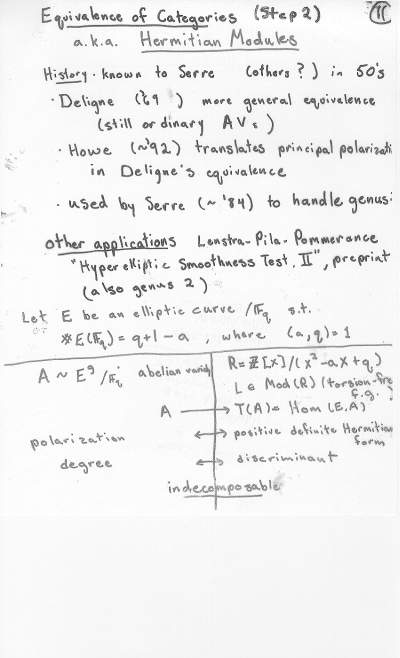 Equivalence of Categories (Step 2) 11
a.k.a. Hermitian Modules
History · known to Serre (others?) in 50's
· Deligne ('69) more general equivalence
(still ordinary AVs)
· Howe (~'92) translates principal polarizati
in Deligne's equivalence
· used by Serre (~'84) to handle genus
other applications Lenstra-Pila-Pommerance
"Hyperelliptic Smoothness Test, II", preprint
(also genus 2)
Let E be an elliptic curve /𝔽q s.t.
#E(𝔽q) = q+1-a, where (a,q)=1
A ~ E^g /𝔽q abelian variety
R = ℤ[x]/(x²-ax+q)
L ∈ Mod(R) (torsion-fre
f.g.
A → T(A) = Hom(E,A)
polarization ↔ positive definite Hermitian
form
degree ↔ discriminant
indecomposable